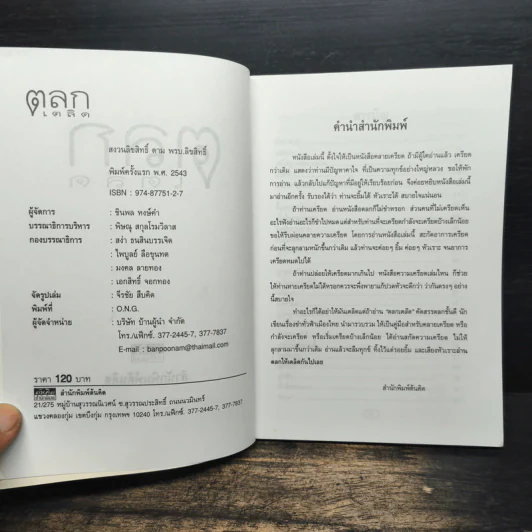 ตลก
เตลิด
สงวนลิขสิทธิ์ ตาม พรบ.ลิขสิทธิ์
พิมพ์ครั้งแรก พ.ศ. 2543
ISBN : 974-87751-2-7
ผู้จัดการ : ชินพล พงษ์ดำ
บรรณาธิการบริหาร : พิษณุ สกุลโรมวิลาส
กองบรรณาธิการ : สง่า ธนสินบรรเจิด
: ไพบูลย์ ลือขุนทด
: มงคล ลายทอง
: เอกสิทธิ์ จอกทอง
จัดรูปเล่ม : จีรชัย สืบคิด
พิมพ์ที่ : O.N.G.
ผู้จัดจำหน่าย : บริษัท บ้านผู้นำ จำกัด
โทร./แฟ็กซ์. 377-2445-7, 377-7837
E-mail : banpoonam@thaimail.com
ราคา 120 บาท
สำนักพิมพ์ต้นคิด
21/275 หมู่บ้านสุวรรณนิเวศน์ ซ.สุวรรณประสิทธิ์ ถนนนวมินทร์
แขวงคลองกุ่ม เขตบึงกุ่ม กรุงเทพฯ 10240 โทร./แฟ็กซ์. 377-2445-7, 377-7837
คำนำสำนักพิมพ์
หนังสือเล่มนี้ ตั้งใจให้เป็นหนังสือคลายเครียด ถ้ามีผู้ใดอ่านแล้ว เครียด
กว่าเดิม แสดงว่าท่านมีปัญหาคาใจ ที่เป็นความทุกข์อย่างใหญ่หลวง ขอให้พัก
การอ่าน แล้วกลับไปแก้ปัญหาที่มีอยู่ให้เรียบร้อยก่อน จึงค่อยหยิบหนังสือเล่มนี้
มาอ่านอีกครั้ง รับรองได้ว่า ท่านจะยิ้มได้ หัวเราะได้ สบายใจแน่นอน
ถ้าท่านเครียด อ่านหนังสือตลกก็ไม่ช่าหรอก ส่วนคนที่ไม่เครียดเห็น
อะไรฟังอ่านอะไรก็ขำไปหมดแต่สำหรับท่านที่จะเครียดกำลังจะเครียดบ้างเล็กน้อย
ขอให้รีบผ่อนคลายความเครียด โดยการอ่านหนังสือเล่มนี้ สะกัดอาการเครียด
ก่อนที่จะลุกลามหนักขึ้นกว่าเดิม แล้วท่านจะค่อยๆ ยิ้ม ค่อยๆ หัวเราะ จนอาการ
เครียดหมดไปได้
ถ้าท่านปล่อยให้เครียดมากเกินไป หนังสือความเครียดเล่มไหน ก็ช่วย
ให้ท่านหายเครียดไม่ได้หรอกควรจะพึ่งพายาแก้ปวดหัวจะดีกว่า ว่ากันตรงๆ อย่าง
นี้สบายใจ
ทำอะไรก็ได้อย่าให้มันเคลิดแต่ถ้าอ่าน "ตลกเตลิด" คัดสรรตลกชั้นดี นัก
เขียนเรื่องขำทั่วฟ้าเมืองไทย นำมารวบรวม ให้เป็นคู่มือสำหรับคลายเครียด หรือ
กำลังจะเครียด หรือเริ่มเครียดบ้างเล็กน้อย ได้อ่านสกัดความเครียด ไม่ให้
ลุกลามมาขึ้นกว่าเดิม อ่านแล้วจะลืมทุกข์ ทิ้งไว้แต่รอยยิ้ม และเสียงหัวเราะอ่าน
ตลกให้เตลิดกันไปเลย
สำนักพิมพ์ต้นคิด